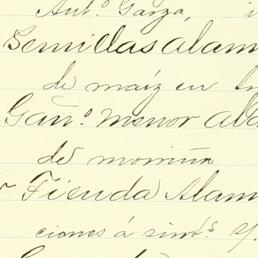 Ant.º Garza, i
Semillas Alam
de maíz en
Gañ.º menor Ala
de morriña
Tienda Alam
ciones á sint.s y.